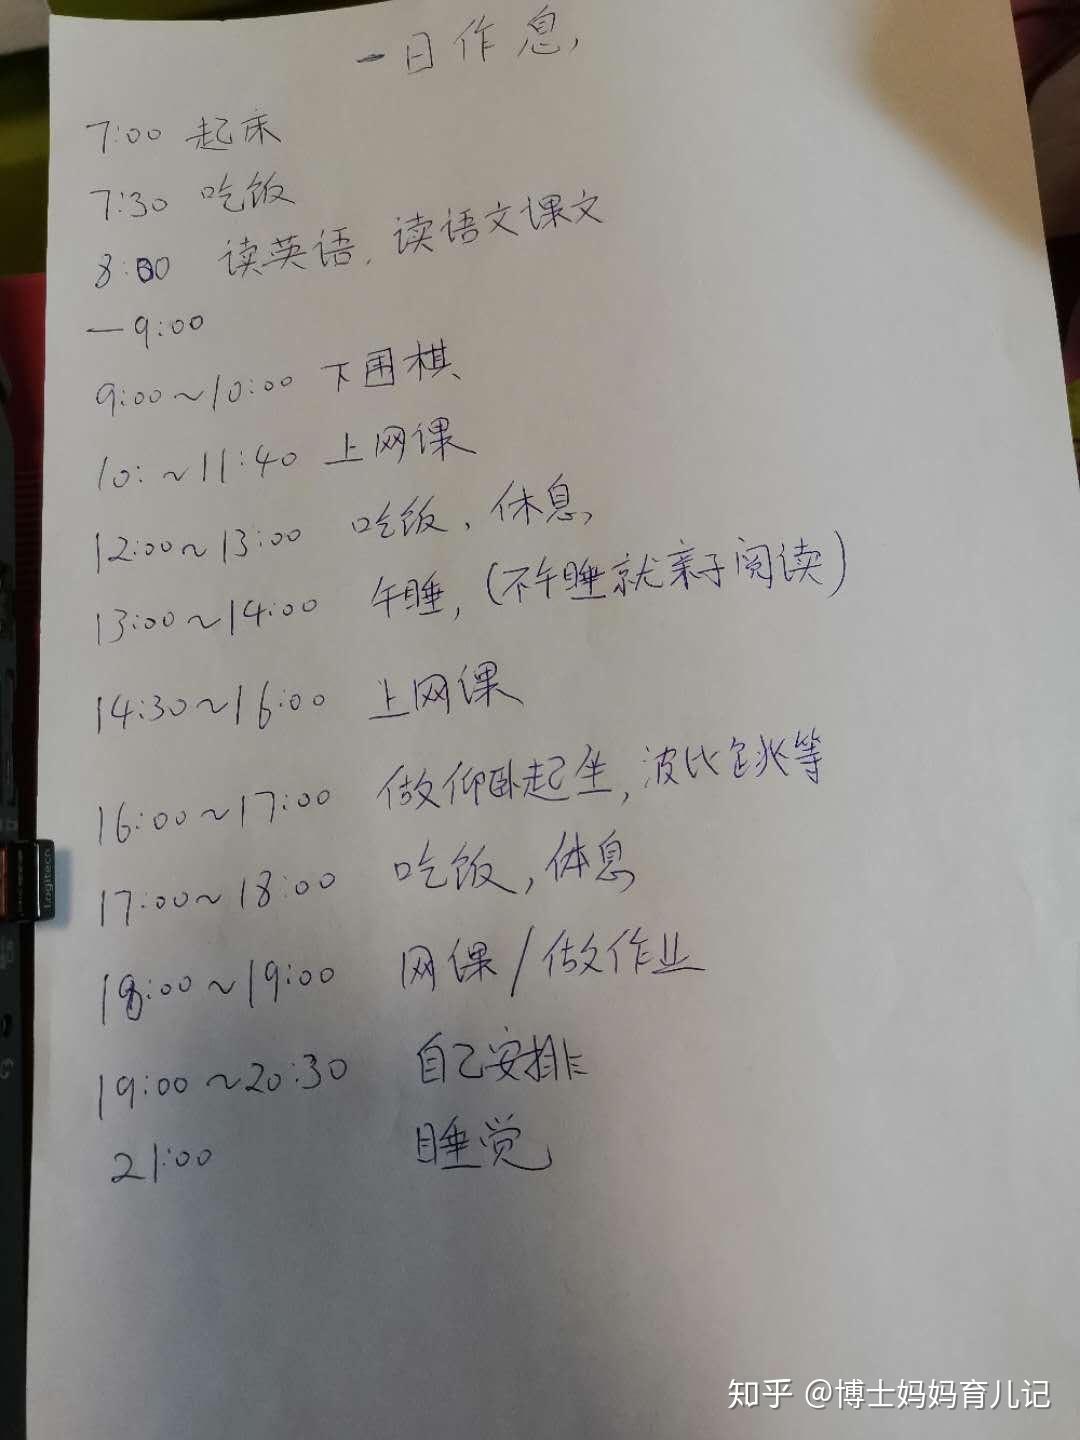 一日作息
7:00 起床
7:30 吃饭
8:00 读英语，读语文课文
—9:00
9:00~10:00 下围棋
10:~11:40 上网课
12:00~13:00 吃饭，休息
13:00~14:00 午睡，(不午睡就亲子阅读)
14:30~16:00 上网课
16:00~17:00 做仰卧起坐，波比跳等
17:00~18:00 吃饭，体息
18:00~19:00 网课/做作业
19:00~20:30 自己安排
21:00 睡觉
Logitech
知乎 @博士妈妈育儿记